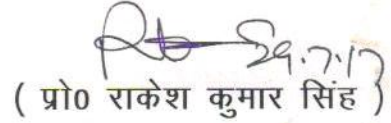 29.7.17
( प्रो0 राकेश कुमार सिंह )